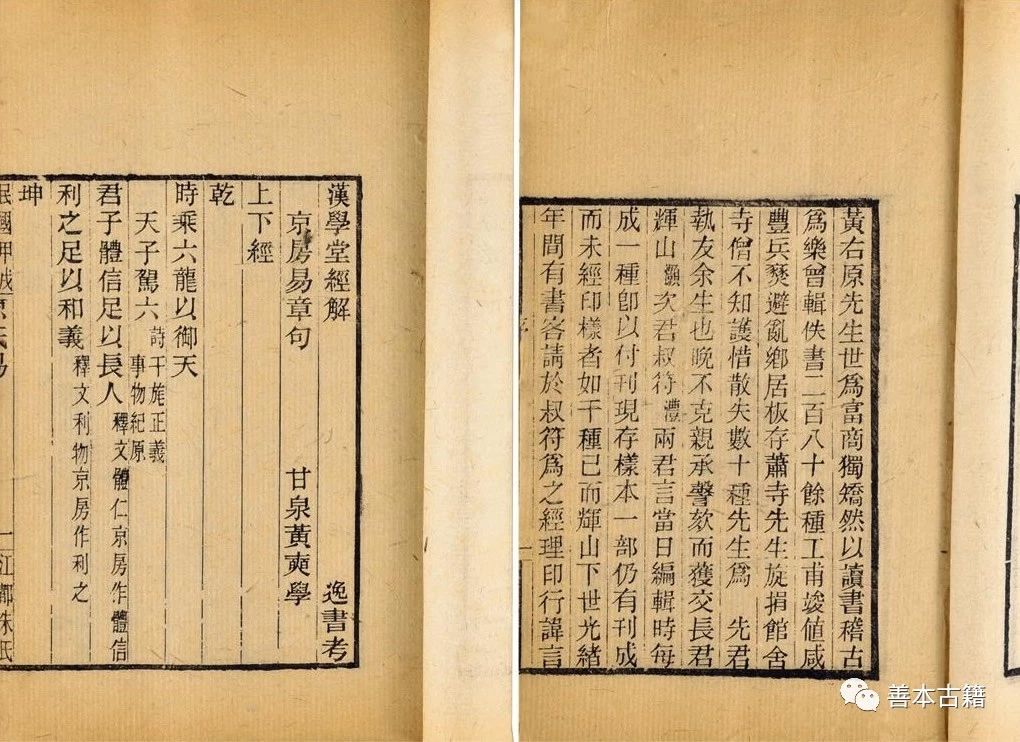 黃右原先生世爲富商獨矯然以讀書稽古
爲樂曾輯佚書二百八十餘種工甫竣值咸
豐兵燹避亂鄉居板存蕭寺先生旋捐館舍
寺僧不知護惜散失數十種先生爲 先君
執友余生也晚不克親承謦欬而獲交長君
輝山灝次君叔符澧兩君言當日編輯時每
成一種卽以付刊現存樣本一部仍有刊成
而未經印樣者如干種已而輝山下世光緒
年間有書客請於叔符爲之經理印行諱言
漢學堂經解 逸書考
京房易章句 甘泉黃奭學
上下經
乾
時乘六龍以御天
天子駕六 詩干旄正義
事物紀原
君子體信足以長人 釋文體仁京房作體信
利之足以和義 釋文利物京房作利之
坤
一 江都朱氏
善本古籍